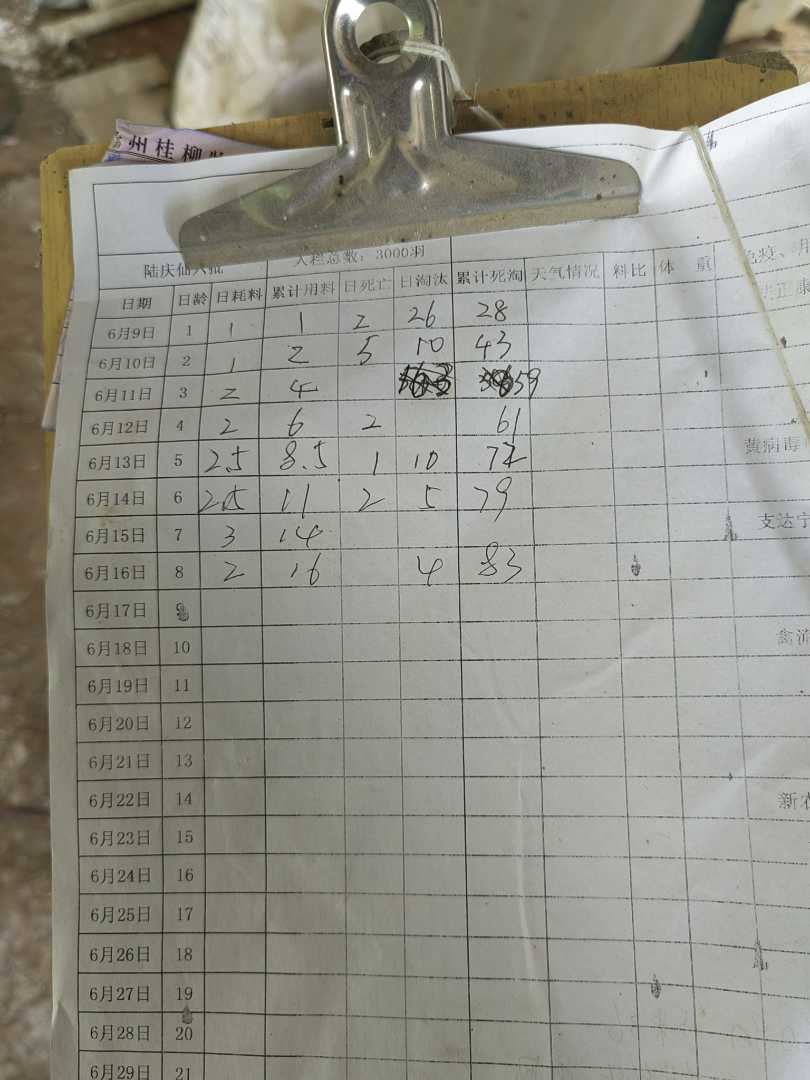 州桂柳
陆庆仙六批 入栏总数：3000羽
日期 日龄 日耗料 累计用料 日死亡 日淘汰 累计死淘 天气情况 料比 体 重
6月9日 1 1 1 2 26 28
6月10日 2 1 2 5 10 43
6月11日 3 2 4 59
6月12日 4 2 6 2 61
6月13日 5 2.5 8.5 1 10 72
黄病毒
6月14日 6 2.5 11 2 5 79
6月15日 7 3 14
支达宁
6月16日 8 2 16 4 83
6月17日 9
6月18日 10
禽流
6月19日 11
6月20日 12
6月21日 13
6月22日 14
新农
6月23日 15
6月24日 16
6月25日 17
6月26日 18
6月27日 19
6月28日 20
6月29日 21